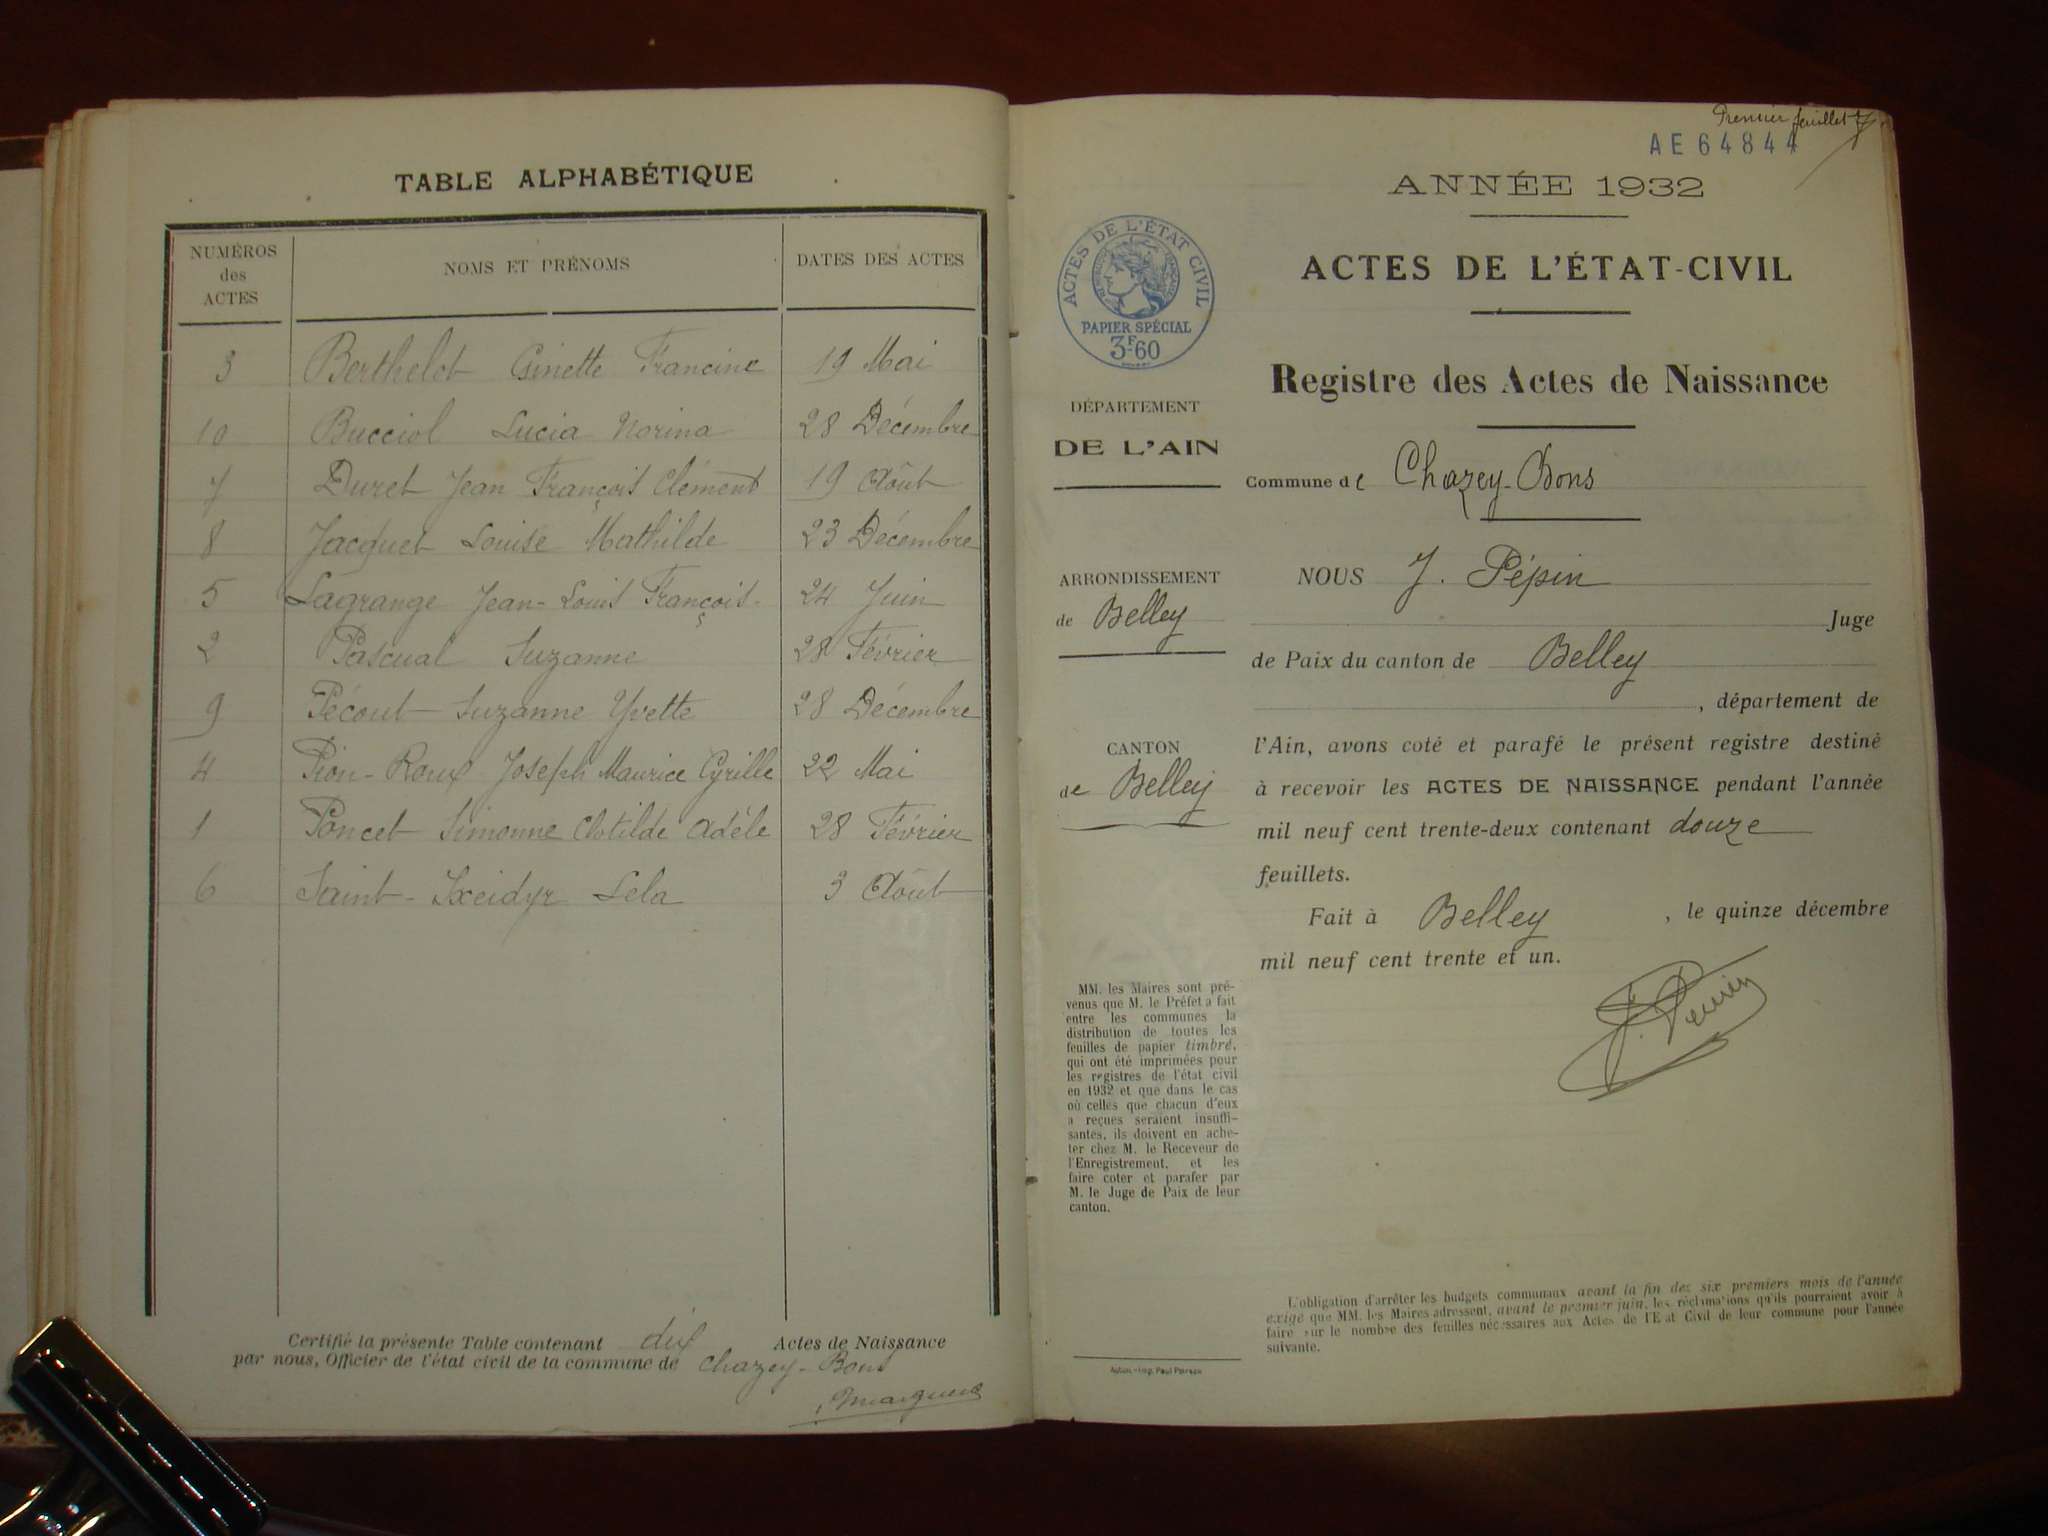 TABLE ALPHABÉTIQUE
NUMÉROS des ACTES NOMS ET PRÉNOMS DATES DES ACTES
3 Berthelot Ginette Francine 19 Mai
10 Bucciol Lucia Norina 28 Décembre
7 Duret Jean François Clément 19 Août
8 Jacquet Louise Mathilde 23 Décembre
5 Lagrange Jean-Louis François 24 Juin
2 Pascual Suzanne 28 Février
9 Pécout Suzanne Yvette 28 Décembre
4 Pion-Roux Joseph Maurice Cyrille 22 Mai
1 Poncet Simonne Clotilde Adèle 28 Février
6 Saint- Lela 3 Août
Certifié la présente Table contenant dix Actes de Naissance
par nous, Officier de l'état civil de la commune de Chazey-Bons
Premier feuillet
AE 64844
ANNÉE 1932
ACTES DE L'ÉTAT CIVIL
PAPIER SPÉCIAL
3F-60
ACTES DE L'ÉTAT-CIVIL
Registre des Actes de Naissance
DÉPARTEMENT
DE L'AIN
Commune de Chazey-Bons
ARRONDISSEMENT
de Belley
CANTON
de Belley
NOUS J. Pépin
Juge
de Paix du canton de Belley
, département de
l'Ain, avons coté et parafé le présent registre destiné
à recevoir les ACTES DE NAISSANCE pendant l'année
mil neuf cent trente-deux contenant douze
feuillets.
Fait à Belley , le quinze décembre
mil neuf cent trente et un.
J. Pépin
MM. les Maires sont pré-
venus que M. le Préfet a fait
entre les communes la
distribution de toutes les
feuilles de papier timbré,
qui ont été imprimées pour
les registres de l'état civil
en 1932 et que dans le cas
où celles que chacun d'eux
a reçues seraient insuffi-
santes, ils doivent en ache-
ter chez M. le Receveur de
l'Enregistrement, et les
faire coter et parafer par
M. le Juge de Paix de leur
canton.
L'obligation d'arrêter les budgets communaux avant la fin des six premiers mois de l'année
exige que MM. les Maires adressent, avant le premier juin, les réclamations qu'ils pourraient avoir à
faire sur le nombre des feuilles nécessaires aux Actes de l'Etat Civil de leur commune pour l'année
suivante.